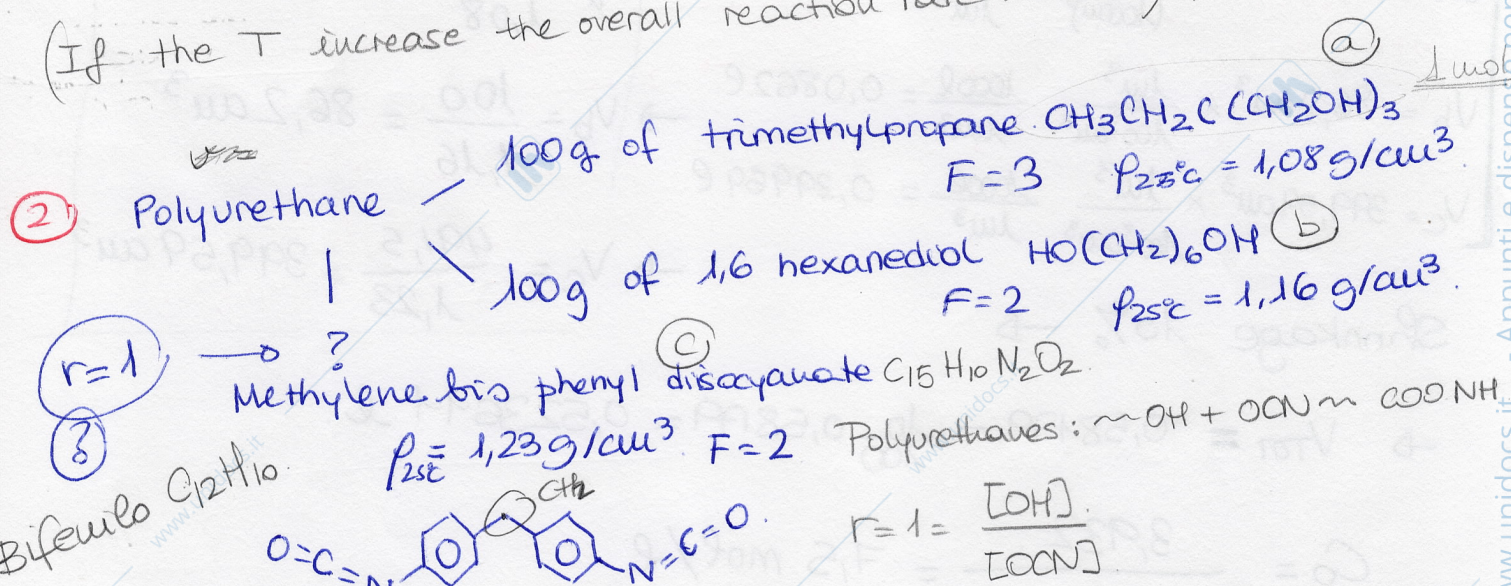 (If the T increase the overall reaction
a
1 mol
100g of trimethylpropane CH3CH2C(CH2OH)3
F=3 ρ25°C = 1,08g/cm³.
2 Polyurethane
100g of 1,6 hexanediol HO(CH2)6OH b
F=2 ρ25°C = 1,16 g/cm³.
r=1 → ?
c
Methylene bis phenyl diisocyanate C15H10N2O2.
ρ25°C = 1,23g/cm³. F=2 Polyurethanes: ~OH + OCN~ COONH
Bifenilo C12H10.
CH2
O=C=N N=C=O.
r=1= [OH]
[OCN]
www.unidocs.it
www.unidocs.it Appunti e dispense